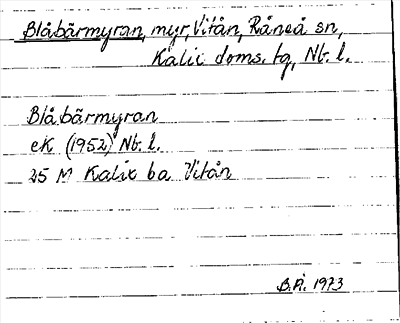 Blåbärmyran, myr, Vitån, Råneå sn,
Kalix doms. tg, Nb. l.
Blåbärmyran
ek (1952) Nb. l.
25 M Kalix ba Vitån
B.Å. 1973